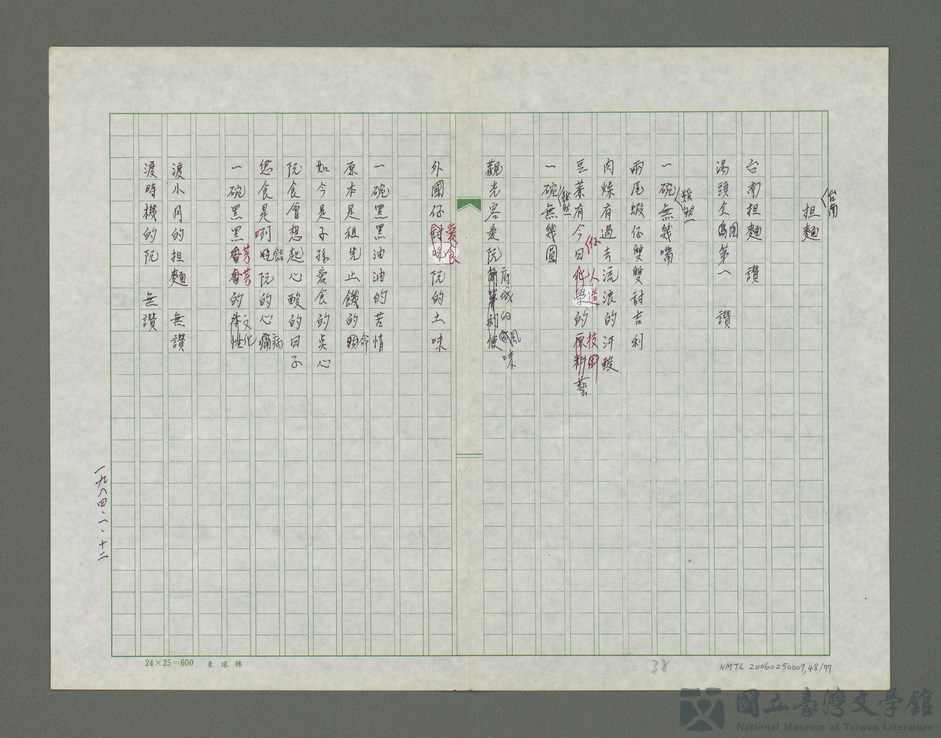 台南
担麵
台南担麵 讚
湯頭全島第一 讚
一碗無幾嘴
兩尾蝦仔雙雙討吉利
肉燥有過去流浪的汗酸
豆菜有今日人造的技術
一碗無幾圓
觀光客愛阮府城的風味
外國仔愛食阮的土味
一碗黑黑油油的苦情
原本是祖先止餓的命
如今是子孫愛食的點心
阮食會想起心酸的日子
您食是阮的心病
一碗黑黑芳芳的文化
渡小月的担麵 無讚
渡時機的阮 無讚
一九八四・一・十二
24×25=600
38
NMTL 20060250007,48/77
國立臺灣文學館
National Museum of Taiwan Literature